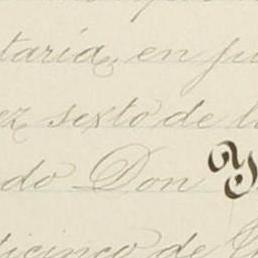 taría, en ju
ez sexto de l
do Don Y
ticinco de